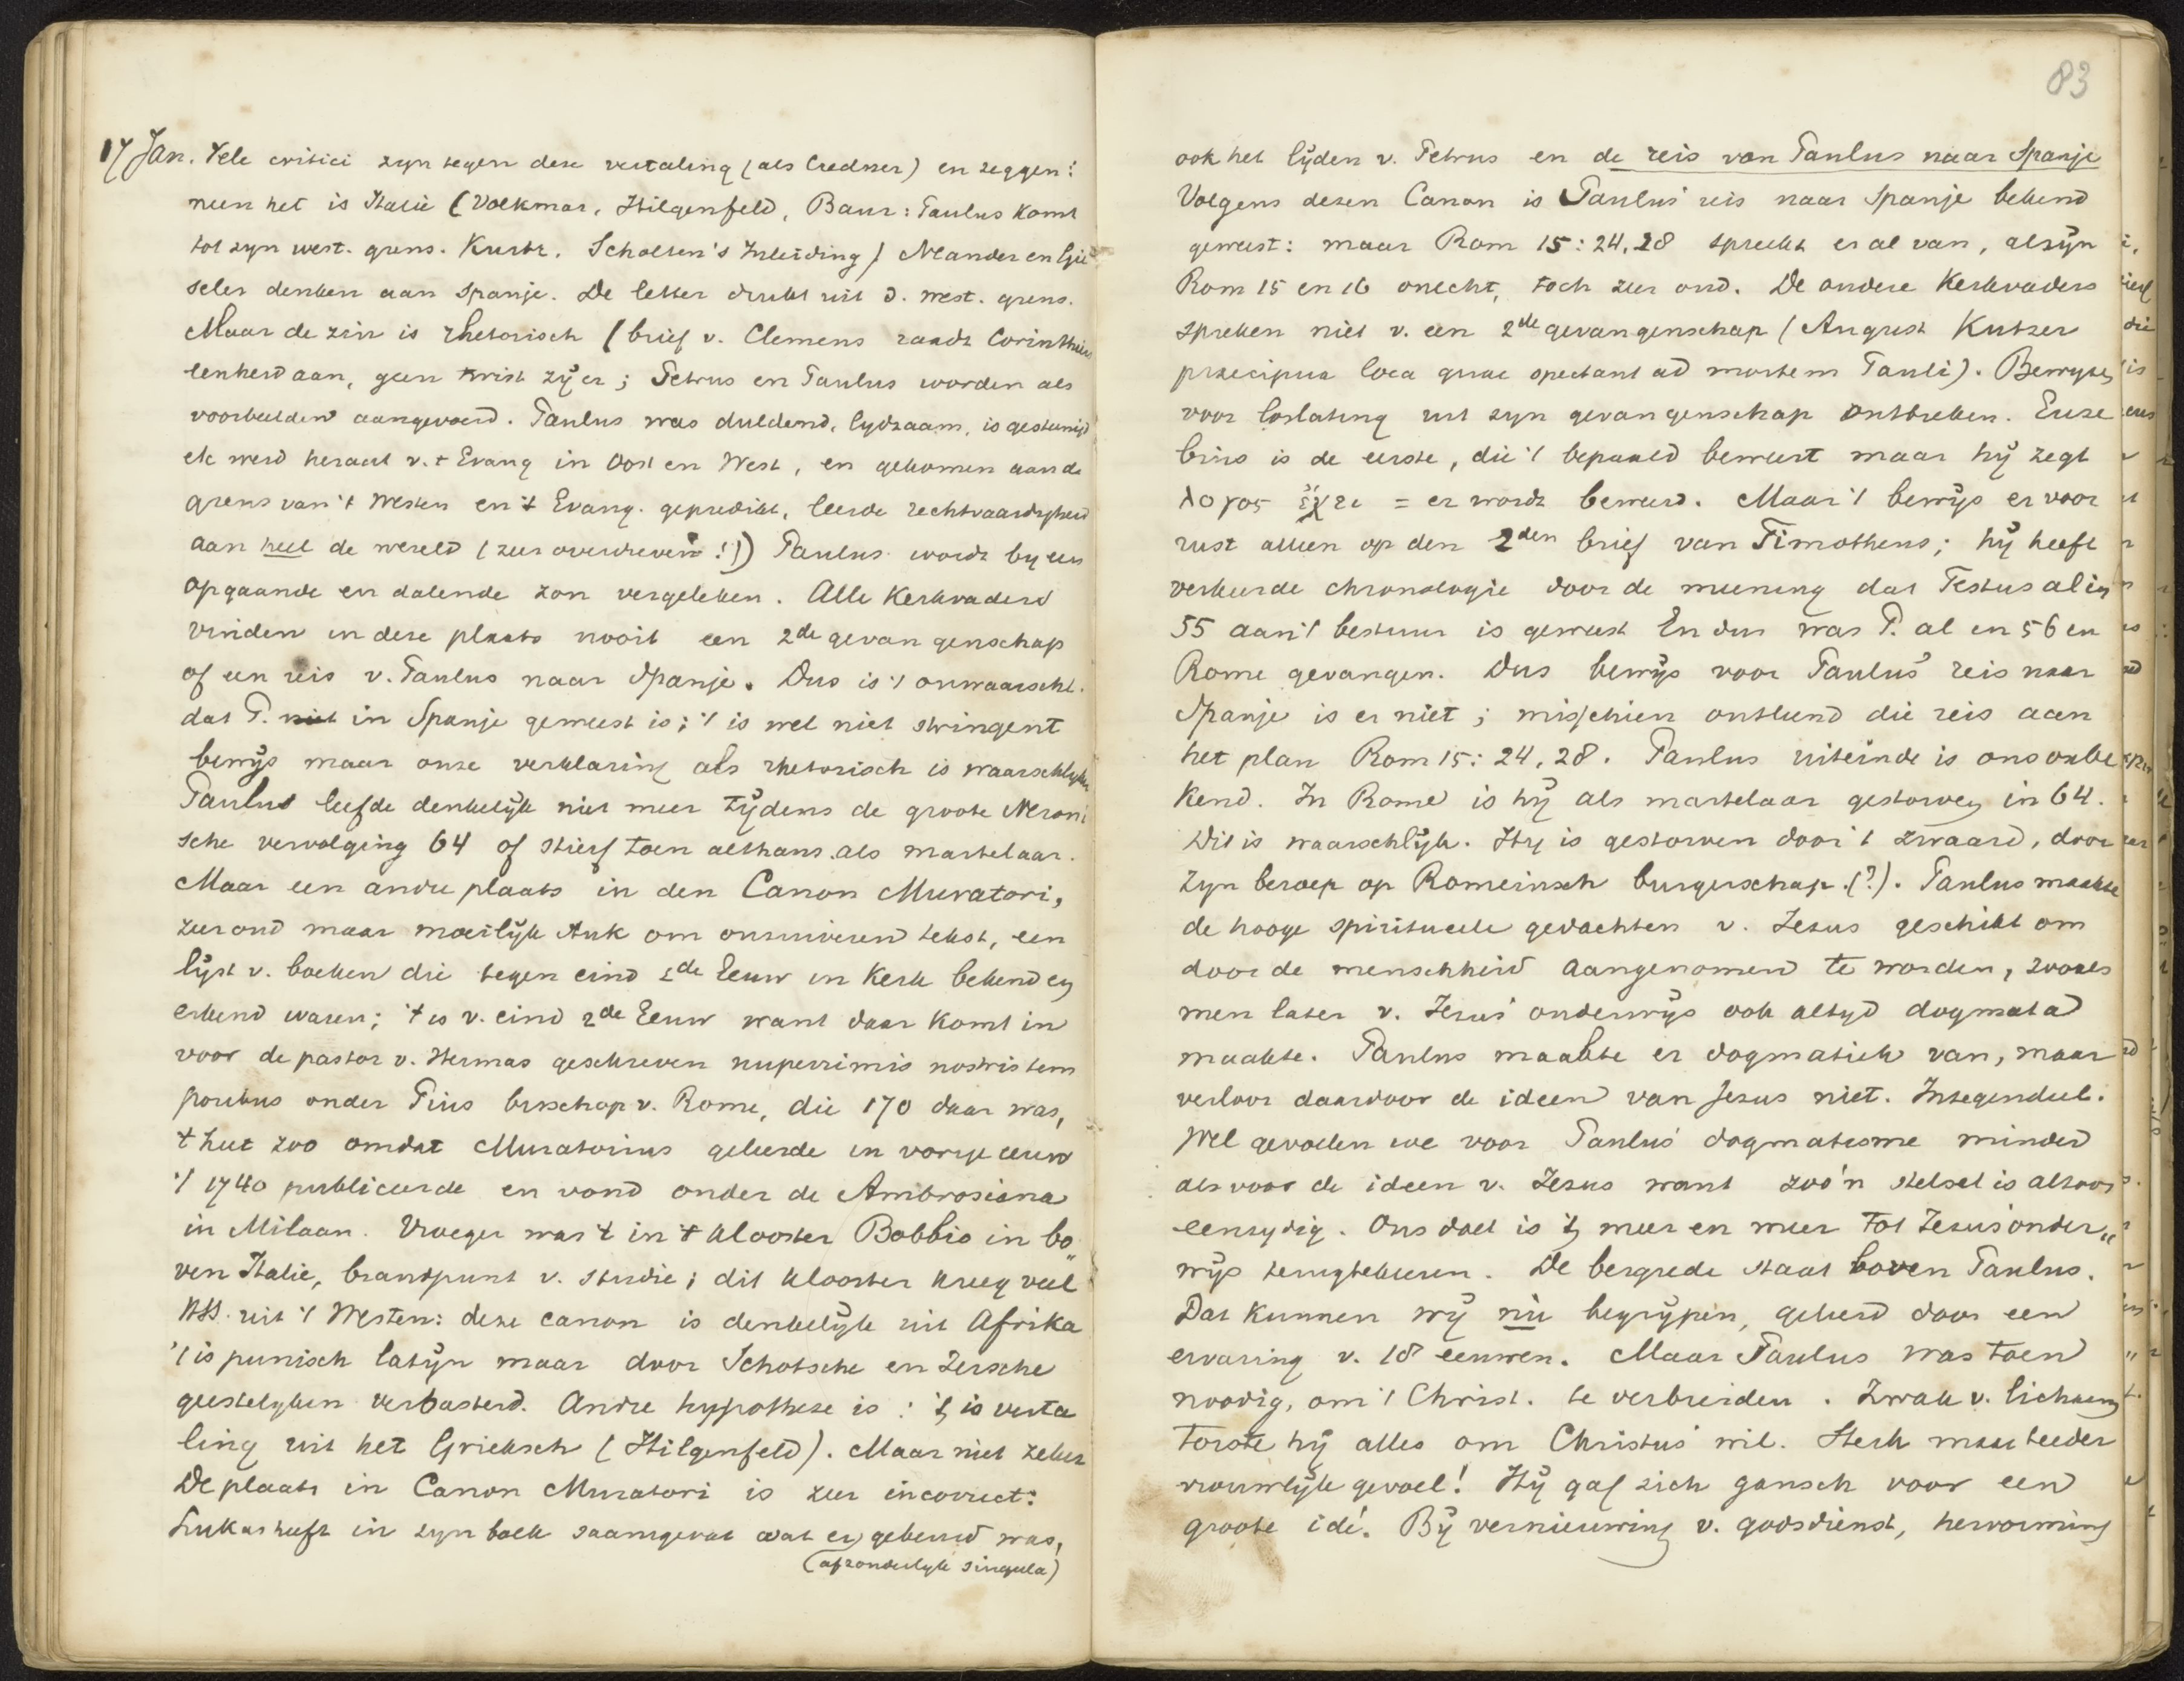 17 Jan. Vele critici zyn tegen deze vertaling (als Credner) en zeggen:
neen het is Italië (Volkmar, Hilgenfeld, Baur: Paulus komt
tot zyn west. grens. Scholten's Inleiding) Neander en Gie
seler denken aan Spanje. De letter drukt uit d. west. grens.
Maar de zin is rhetorisch (brief v. Clemens raadt Corinthiers
eenheid aan, geen twist zij er; Petrus en Paulus worden als
voorbeelden aangevoerd. Paulus was duldend, lydzaam, is gesteenigd
etc werd heraut v. 't Evang in Oost en West, en gekomen aan de
grens van 't Westen en 't Evang. gepredikt, leerde rechtvaardigheid
aan heel de wereld (zeer overdreven!)) Paulus wordt by een
opgaande en dalende zon vergeleken. Alle Kerkvaders
vinden in deze plaats nooit een 2de gevangenschap
of een reis v. Paulus naar Spanje. Dus is 't onwaarschl.
dat P. niet in Spanje geweest is; 't is wel niet stringent
bewijs maar onze verklaring als rhetorisch is waarschlyk
Paulus leefde denkelijk niet meer tijdens de groote Neroni
sche vervolging 64 of stierf toen althans als martelaar.
Maar een andre plaats in den Canon Muratori,
zeer oud maar moeilijk stuk om onzuiveren tekst, een
lijst v. boeken die tegen eind 2de Eeuw in Kerk bekend en
erkend waren; 't is v. eind 2de Eeuw want daar komt in
voor de pastor v. Hermas geschreven nuperrimis nostris tem
poribus onder Pius bisschop v. Rome, die 170 daar was,
't heet zoo omdat Muratorius geleerde in vorige eeuw
't 1740 publiceerde en vond onder de Ambrosiana
in Milaan. Vroeger was 't in 't klooster Bobbio in bo„
ven Italië, brandpunt v. studie; dit klooster kreeg veel
HSS. uit 't Westen: deze canon is denkelijk uit Afrika
't is punisch latijn maar door Schotsche en Iersche
geestelyken verbasterd. Andre hypothese is: 't is verta
ling uit het Grieksch (Hilgenfeld). Maar niet zeker
De plaats in Canon Muratori is zeer incorrect:
Lukas heeft in zyn boek saamgevat wat er gebeurd was,
(afzonderlyk singula)
83
ook het lijden v. Petrus en de reis van Paulus naar Spanje
Volgens dezen Canon is Paulus' reis naar Spanje bekend
geweest: maar Rom 15:24,28 spreekt er al van, al zijn
Rom 15 en 16 onecht, toch zeer oud. De andere Kerkvaders
spreken niet v. een 2de gevangenschap (August Kutzer
praecipua loca quae spectant ad mortem Pauli). Bewyzen
voor loslating uit zyn gevangenschap ontbreken. Euse
bius is de eerste, die 't bepaald beweert maar hij zegt
λογος ἔχει = er wordt beweerd. Maar 't bewijs er voor
rust alleen op den 2den brief van Timotheus; hij heeft
verkeerde chronologie door de meening dat Festus al in
55 aan 't bestuur is geweest En dus was P. al en 56 en
Rome gevangen. Dus bewijs voor Paulus' reis naar
Spanje is er niet; misschien ontstond die reis aan
het plan Rom 15:24,28. Paulus uiteinde is ons onbe
kend. In Rome is hij als martelaar gestorven in 64.
Dit is waarschlijk. Hy is gestorven door 't zwaard, door
zyn beroep op Romeinsch burgerschap.(?). Paulus maakte
de hooge spiritueele gedachten v. Jezus geschikt om
door de menschheid aangenomen te worden, zooals
men later v. Jezus' onderwijs ook altyd dogmata
maakte. Paulus maakte er dogmatiek van, maar
verloor daardoor de ideen van Jezus niet. Integendeel.
Wel gevoelen we voor Paulus' dogmatisme minder
als voor de ideen v. Jezus want zoo'n stelsel is altoos
eenzydig. Ons doel is 't, meer en meer tot Jezus' onder„
wijs terugtekeeren. De bergrede staat boven Paulus.
Dat kunnen wij nu begrijpen, geleerd door een
ervaring v. 18 eeuwen. Maar Paulus was toen
noodig, om 't Christ. te verbreiden. Zwak v. lichaam
torste hij alles om Christus' wil. Sterk maar teeder
vrouwlijk gevoel! Hij gaf zich gansch voor een
groote idé. Bij vernieuwing v. godsdienst, hervorming